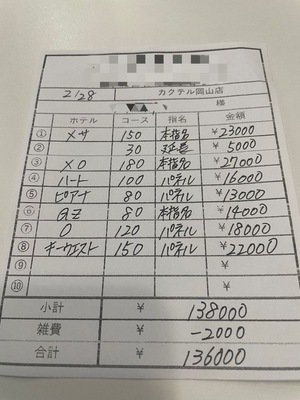 2/28 カクテル岡山店
様
ホテル コース 指名 金額
① メサ 150 本指名 ¥23000
② 30 延長 ¥5000
③ XO 180 本指名 ¥27000
④ ハート 100 パネル ¥16000
⑤ ピアーナ 80 パネル ¥13000
⑥ az 80 本指名 ¥14000
⑦ O 120 パネル ¥18000
⑧ キーウエスト 150 パネル ¥22000
⑨ ¥
⑩ ¥
小計 ¥ 138000
雑費 ¥ -2000
合計 ¥ 136000